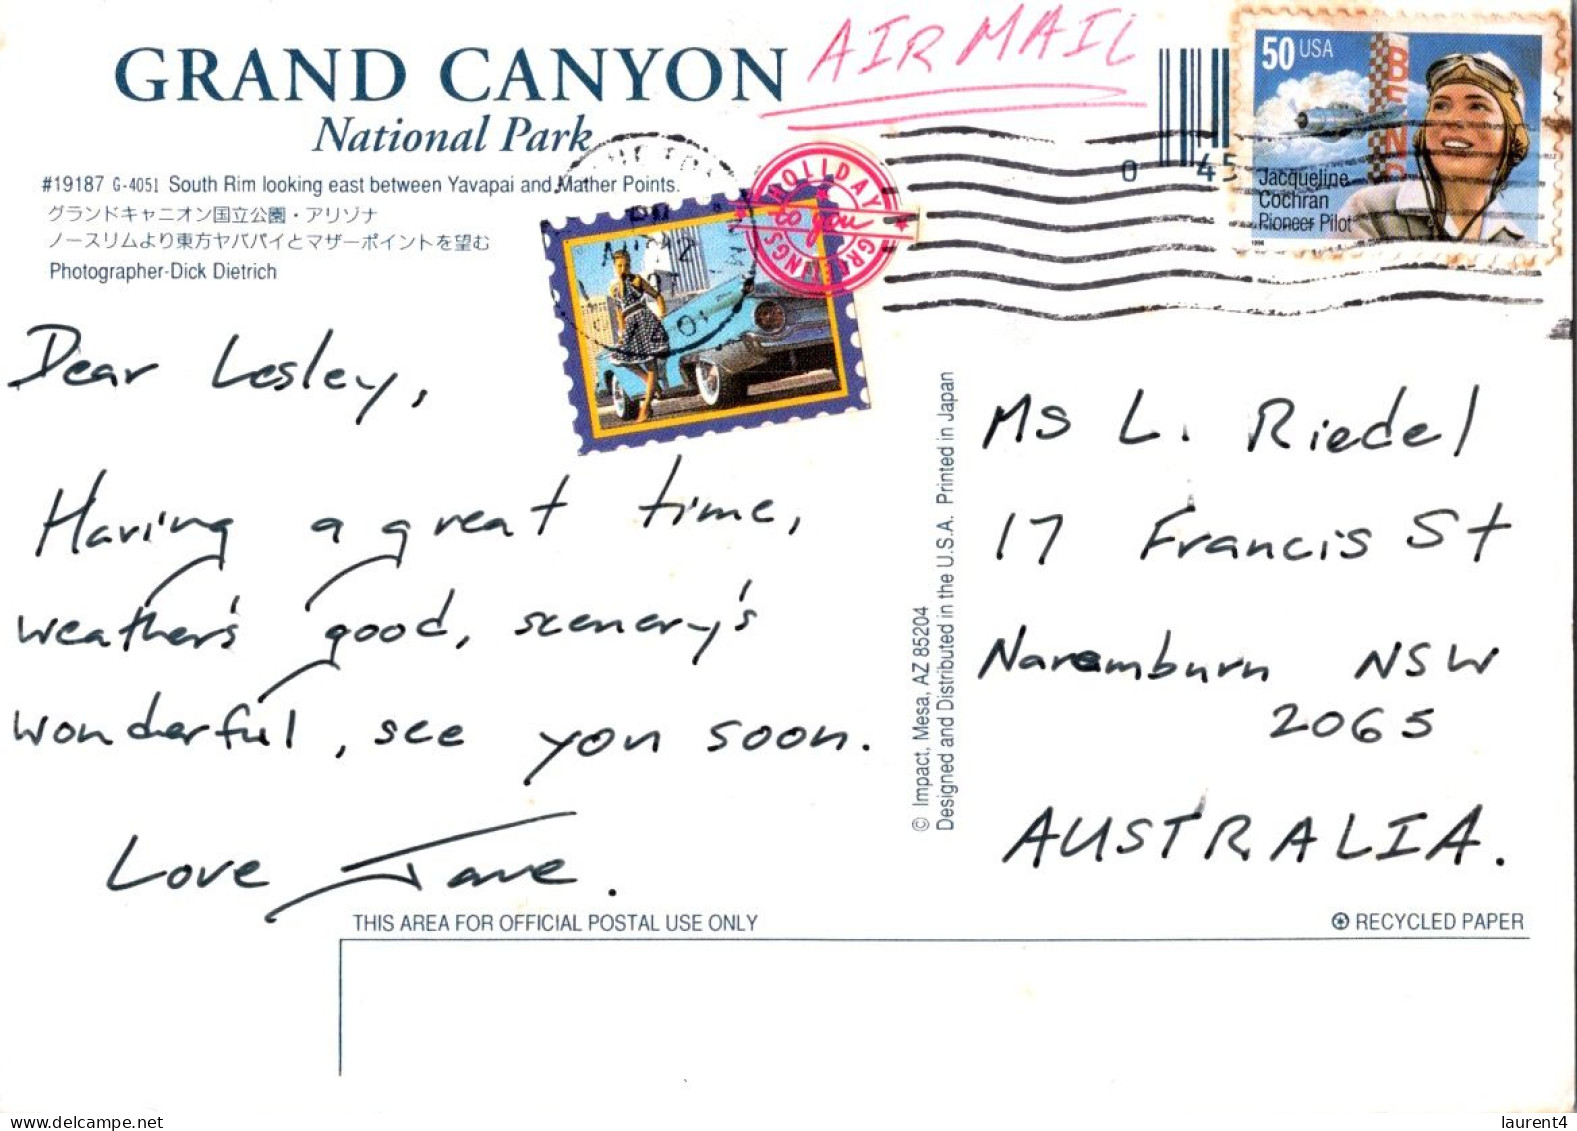 GRAND CANYON
National Park
AIR MAIL
#19187 G-4051 South Rim looking east between Yavapai and Mather Points.
グランドキャニオン国立公園・アリゾナ
ノースリムより東方ヤババイとマザーポイントを望む
Photographer-Dick Dietrich
HOLIDAY
to you
GREETINGS
0 45
50 USA
BENDIX
Jacqueline
Cochran
Pioneer Pilot
1996
Dear Lesley,
Having a great time,
weather's good, scenery's
wonderful, see you soon.
Love Jane.
© Impact, Mesa, AZ 85204
Designed and Distributed in the U.S.A. Printed in Japan
Ms L. Riedel
17 Francis St
Naremburn NSW
2065
AUSTRALIA.
THIS AREA FOR OFFICIAL POSTAL USE ONLY
RECYCLED PAPER
laurent4